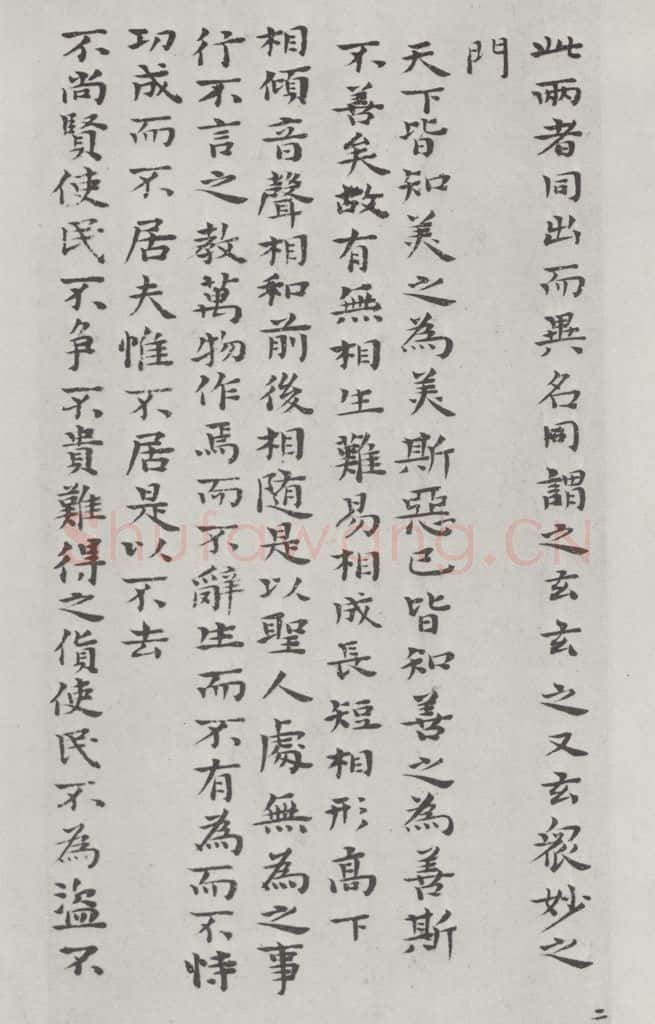 此兩者同出而異名同謂之玄玄之又玄衆妙之
門
天下皆知美之為美斯惡已皆知善之為善斯
不善矣故有無相生難易相成長短相形高下
相傾音聲相和前後相随是以聖人處無為之事
行不言之教萬物作焉而不辭生而不有為而不恃
功成而不居夫惟不居是以不去
不尚賢使民不争不貴難得之貨使民不為盜不
二
Shufawang.CN